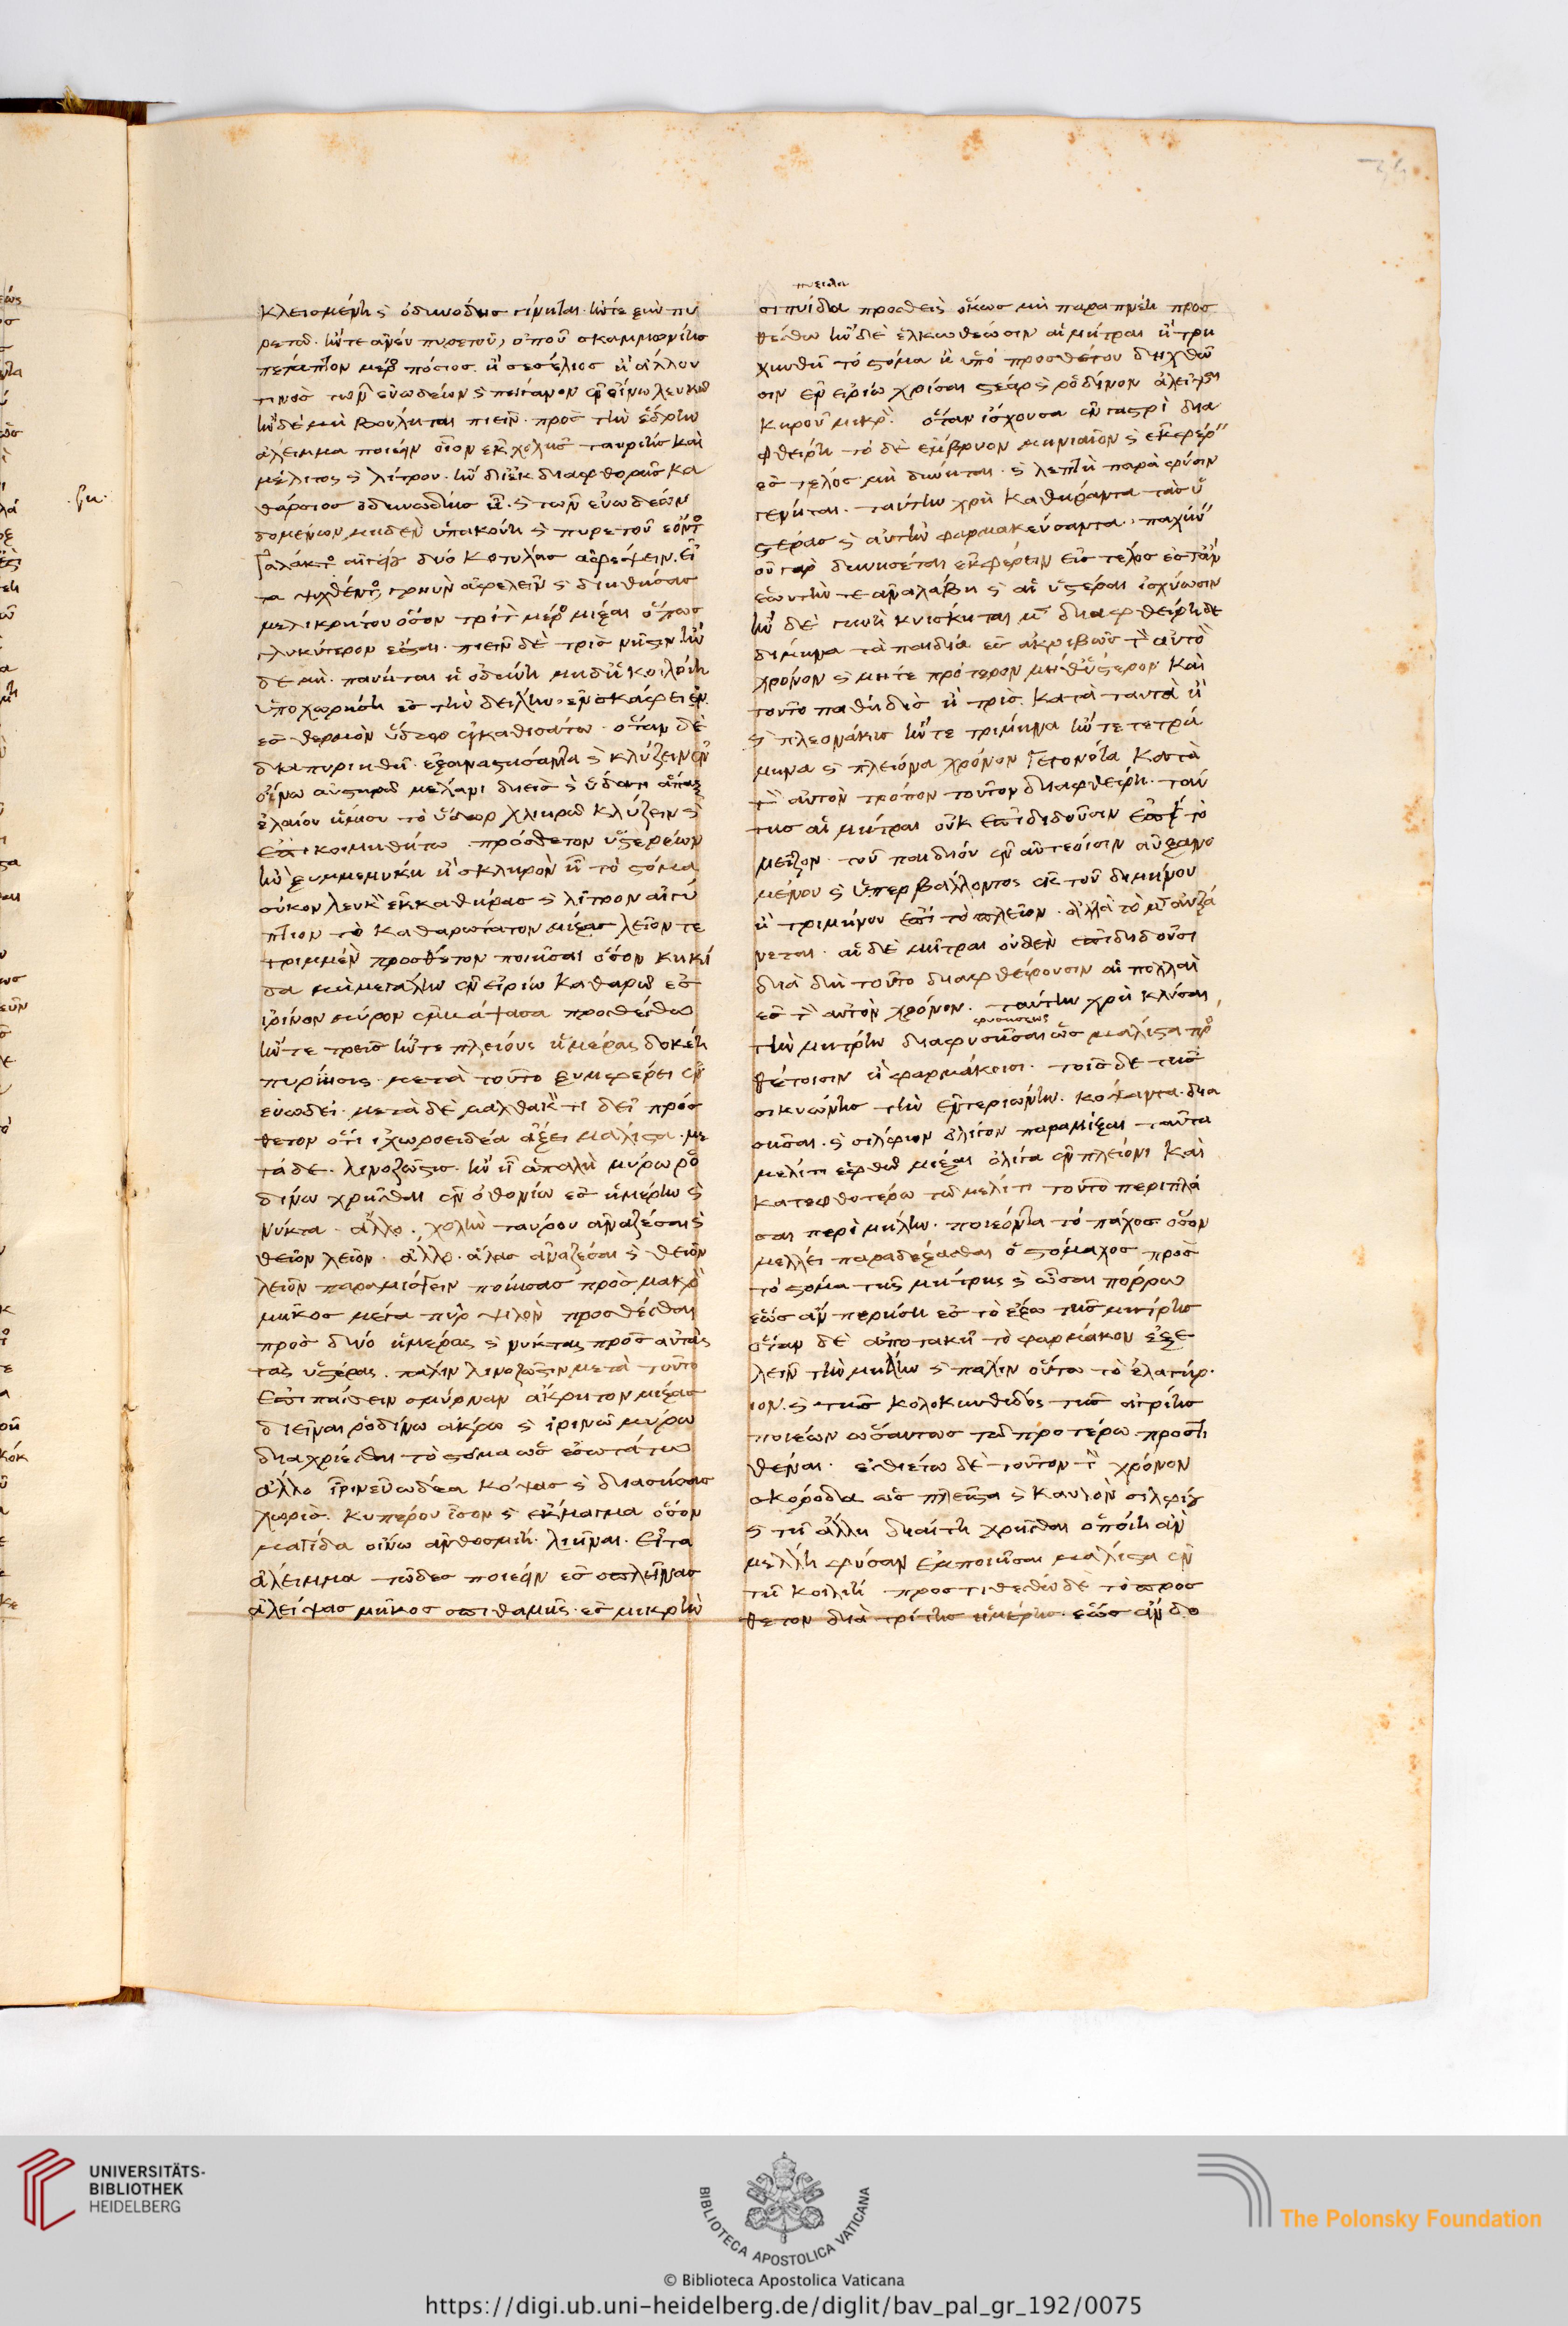 κλεισμένη ϛ ὀδυνώδης γίνηται. ἤν τε ξὺν πυ
ρετῶ. ἤν τε ἄνευ πυρετοῦ, ὀποῦ σκαμμωνίης
πέμπτον μέρος πόσιος. ἢ σεσέλιος ἢ ἄλλου
τινὸς τῶν εὐωδέων ϛ πήγανον ἐν οἴνω λευκῶ
ἢν δὲ μὴ βούληται πιεῖν. πρὸς τὴν ἕδρην
ἄλειμμα ποιέην οἷον ἐκ χολῆς ταυρείης καὶ
μέλιτος ϛ λίτρου. ἢν δὲ ἐκ διαφθορῆς κα
θάρσιος ὀδυνώδης ᾖ. ϛ τῶν εὐωδέων
δομένων μηδὲν ὑπακούη ϛ πυρετοῦ ἐόντος
γάλακτος αἰγείου δύο κοτύλας ἀφεψεῖν. εἶ
τα ψυχθέντος, γρηῢν ἀφελεῖν ϛ διηθήσας
μελικρήτου ὅσον τρίτον μέρος μίξαι ὅπως
γλυκύτερον ἔσται. πιεῖν δὲ τρὶς νῆστιν ἢν
δὲ μὴ παύηται ἡ ὀδύνη μηδ' ἡ κοιλίη
ὑποχωρήση ἐς τὴν δείλην. ἐν σκάφει ἐν
ἐς θερμὸν ὕδωρ ἐγκαθισάτω. ὅταν δὲ
διαπυριηθῆ. ἐξαναστήσαντα ϛ κλύζειν ἐν
οἴνω αὐστηρῶ μέλανι διεὶς ϛ ὕδατι ἅπαξ
ἐλαίου ἥμισυ τὸ ὕδωρ χλιηρῶ κλύζειν ϛ
ἐπικοιμηθήτω. πρόσθετον ὑστερέων
ἢν ξυμμεμύκη ἢ σκληρὸν ἦ τὸ στόμα
σύκον λευκὸν ἐκκαθήρας ϛ λίτρον αἰγύ
πτιον τὸ καθαρώτατον μίξας λεῖον τε
τριμμένον προσθέτον ποιῆσαι ὅσον κηκί
δα μὴ μεγάλην ἐν εἰρίω καθαρῶ ἐς
ἰρίνον μύρον ἐμβάψασα προσθέσθω
ἤν τε τρεῖς ἤν τε πλείους ἡμέρας δοκέη
πυρίησις μετὰ τοῦτο ξυμφέρει ἐν
εὐωδεῖ. μετὰ δὲ μαλθακόν τι δεῖ πρόσ
θετον ὅτι ἰχωροειδέα ἄξει μάλιστα. με
τὰ δὲ. λινόζωστις. ἢν ἦ ἁπαλὴ μύρω ῥο
δίνω χρῆσθαι ἐν ὀθονίω ἐς ἡμέρην ϛ
νύκτα. ἄλλο. χολὴν ταύρου ἀναζέσαι ϛ
θεῖον λεῖον. ἄλλο. ἅλας ἀναζέσαι ϛ θεῖον
λεῖον παραμίσγειν ποιήσας πρὸς μακρὸν
μῆκος μετὰ πῦρ ψιλὸν προσθέσθαι
πρὸς δύο ἡμέρας ϛ νύκτας πρὸς αὐτὰς
τὰς ὑστέρας. πάλιν λινόζωστιν μετὰ τοῦτο
ἐπιπάσσειν σμύρναν ἄκρητον μίξας
διεῖναι ῥοδίνω ἄκρω ϛ ἰρίνω μύρω
διαχρίεσθαι τὸ στόμα ὡς ἐσωτάτω
ἄλλο ἴριν εὐωδέα κόψας ϛ διασήσας
χωρίς. κυπέρου ἴσον ϛ ἔκμαγμα ὅσον
μαγίδα οἴνω ἀνθοσμίη. λιῆναι. εἶτα
ἄλειμμα τῶδες ποιέην ἐς σπλεῖνας
ἀλείψας μῆκος σπιθαμῆς. ἐς μικρὴν
σιπύϊδα προσθεὶς ὅκως μὴ παραπνέη προσ
θέσθω ἢν δὲ ἑλκωθέωσιν αἱ μῆτραι ἢ τρη
χυνθῆ τὸ στόμα ἢ ὑπὸ προσθέτου δηχθῶ
σιν ἐν εἰρίω χρίσαι στέαρ ϛ ῥόδινον ἀλειφα
κηροῦ μικρόν. ὅταν ἴσχουσα ἐν γαστρὶ δια
φθείρη τὸ δὲ ἔμβρυον μηνιαῖον ϛ ἐκφέρειν
ἐς τέλος μὴ δύνηται. ϛ λεπτὴ παρὰ φύσιν
γένηται. ταύτην χρὴ καθήραντα τὰς ὑ
στέρας ϛ αὐτὴν φαρμακεύσαντα. παχύνειν
οὐ γὰρ δυνήσεται ἐκφέρειν εἰς τέλος ἔστ' ἂν
ἑωυτήν τε ἀναλάβη ϛ αἱ ὑστέραι ἰσχύωσιν
ἢν δὲ γυνὴ κυίσκηται μὲν διαφθείρη δὲ
δίμηνα τὰ παιδία ἐς ἀκριβῶς τὸν αὐτὸν
χρόνον ϛ μήτε πρότερον μήθ' ὕστερον καὶ
τοῦτο πάθη δὶς ἢ τρίς. κατὰ ταυτὰ ἢ
ϛ πλεονάκις ἤν τε τρίμηνα ἤν τε τετρά
μηνα ϛ πλείονα χρόνον γεγονότα κατὰ
τὸν αὐτὸν τρόπον τοῦτον διαφθείρη. ταύ
της αἱ μῆτραι οὐκ ἐπιδιδοῦσιν ἐπὶ τὸ
μεῖζον. τοῦ παιδίου ἐν αὐτεοίσιν αὐξανο
μένου ϛ ὑπερβάλλοντος ἐκ τοῦ διμήνου
ἢ τριμήνου ἐπὶ τὸ πλεῖον. ἀλλὰ τὸ μὲν αὐξά
νεται. αἱ δὲ μῆτραι οὐδὲν ἐπιδιδοῦσι
διὰ δὴ τοῦτο διαφθείρουσιν αἱ πολλαὶ
ἐς τὸν αὐτὸν χρόνον. ταύτην χρὴ κλύσαι
φυσήσεως
τὴν μήτρην διαφυσῆσαι ὡς μάλιστα προσ
θέτοισιν ἢ φαρμάκοισι. τοῖσδε τῆς
σικυώνης τὴν ἐντεριώνην. κόψαντα δια
σῆσαι. ϛ σίλφιον ὀλίγον παραμίξαι ταῦτα
μέλιτι ἑφθῶ μίξαι ὀλίγα ἐν πλείονι καὶ
κατεφθοτέρω τῶ μέλιτι τοῦτο περιπλά
σαι περὶ μήλην. ποιέοντα τὸ πάχος ὅσον
μέλλει παραδέξασθαι ὁ στόμαχος πρὸς
τὸ στόμα τῆς μήτρης ϛ ὦσαι πόρρω
ἕως ἂν περήση ἐς τὸ ἔξω τῆς μήτρης
ὅταν δὲ ἀποτακῆ τὸ φάρμακον ἐξε
λεῖν τὴν μήλην ϛ πάλιν οὕτω τὸ ἐλατήρ
ιον. ϛ τῆς κολοκυνθίδος τῆς ἀγρίης
ποιέων ὡσαύτως τῶ προτέρω προστι
θέναι. ἐσθιέτω δὲ τοῦτον τὸν χρόνον
σκόροδα ὡς πλεῖστα ϛ καυλὸν σιλφίου
ϛ τῆ ἄλλη διαίτη χρῆσθαι ὁποίη ἂν
μέλλη φύσαν ἐμποιῆσαι μάλιστα ἐν
τῆ κοιλίη. προστιθέσθω δὲ τὸ πρόσ
θετον διὰ τρίτης ἡμέρης. ἕως ἂν δο
UNIVERSITÄTS-
BIBLIOTHEK
HEIDELBERG
BIBLIOTECA APOSTOLICA VATICANA
The Polonsky Foundation
© Biblioteca Apostolica Vaticana
https://digi.ub.uni-heidelberg.de/diglit/bav_pal_gr_192/0075